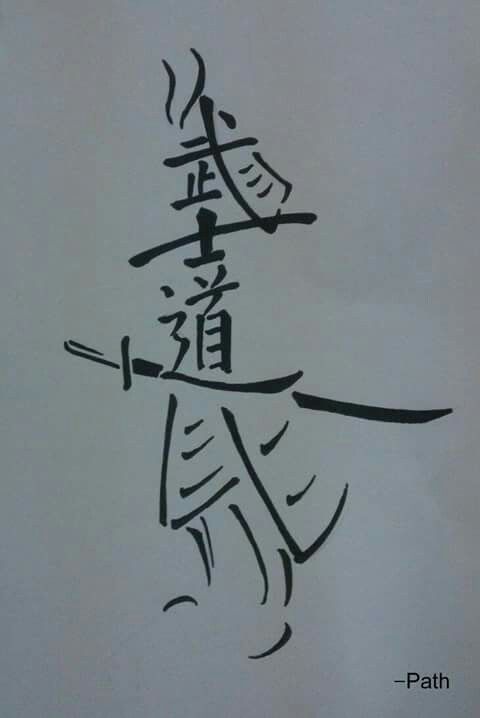 武
士
道
-Path